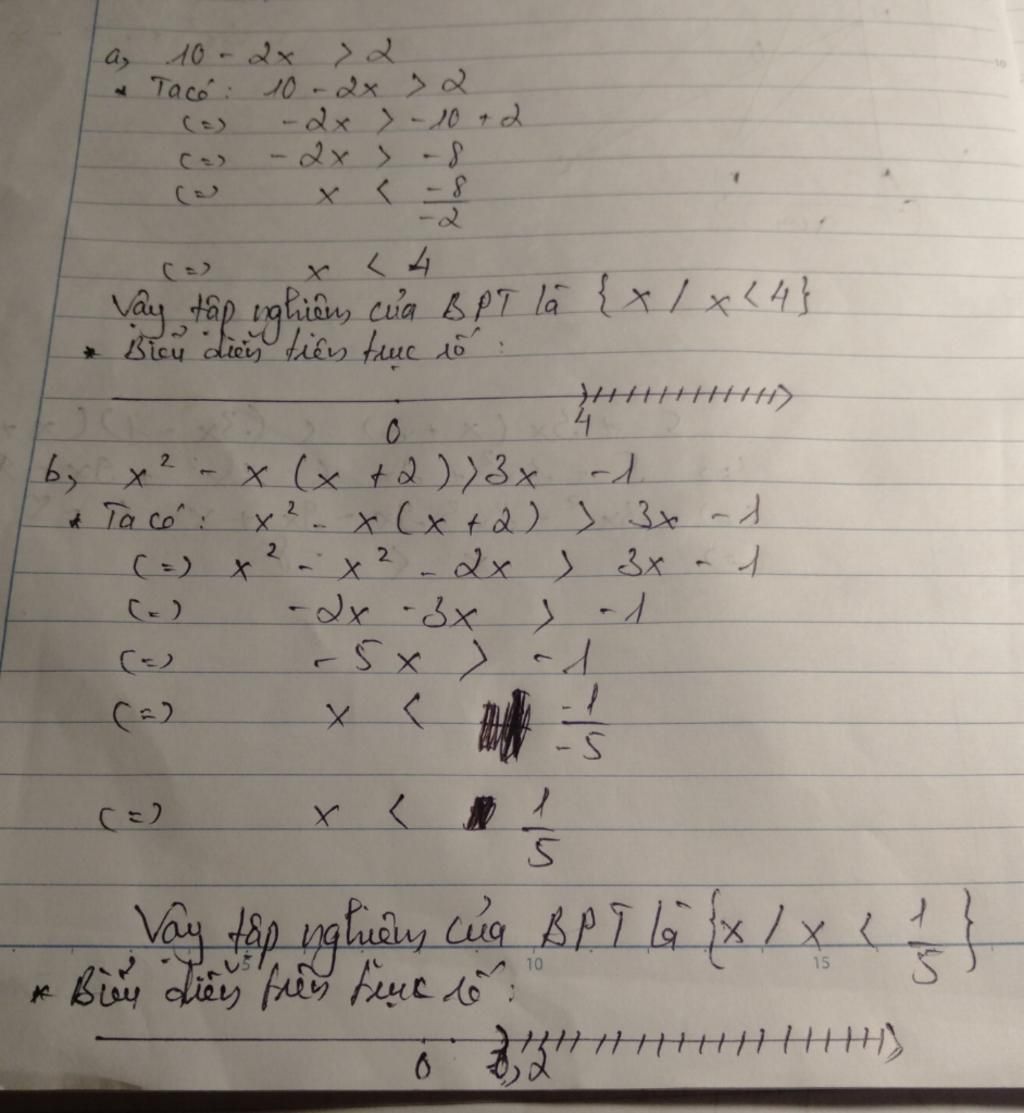 a, 10 - 2x > 2
* Ta có: 10 - 2x > 2
(=) -2x > -10 + 2
(=) -2x > -8
(=) x < -8/-2
(=) x < 4
Vậy tập nghiệm của BPT là {x / x < 4}
* Biểu diễn trên trục số:
0 4
b, x² - x (x + 2) > 3x - 1
* Ta có: x² - x (x + 2) > 3x - 1
(=) x² - x² - 2x > 3x - 1
(=) -2x - 3x > -1
(=) -5x > -1
(=) x < -1/-5
(=) x < 1/5
Vậy tập nghiệm của BPT là {x / x < 1/5}
5 10 15
* Biểu diễn trên trục số:
0 0,2